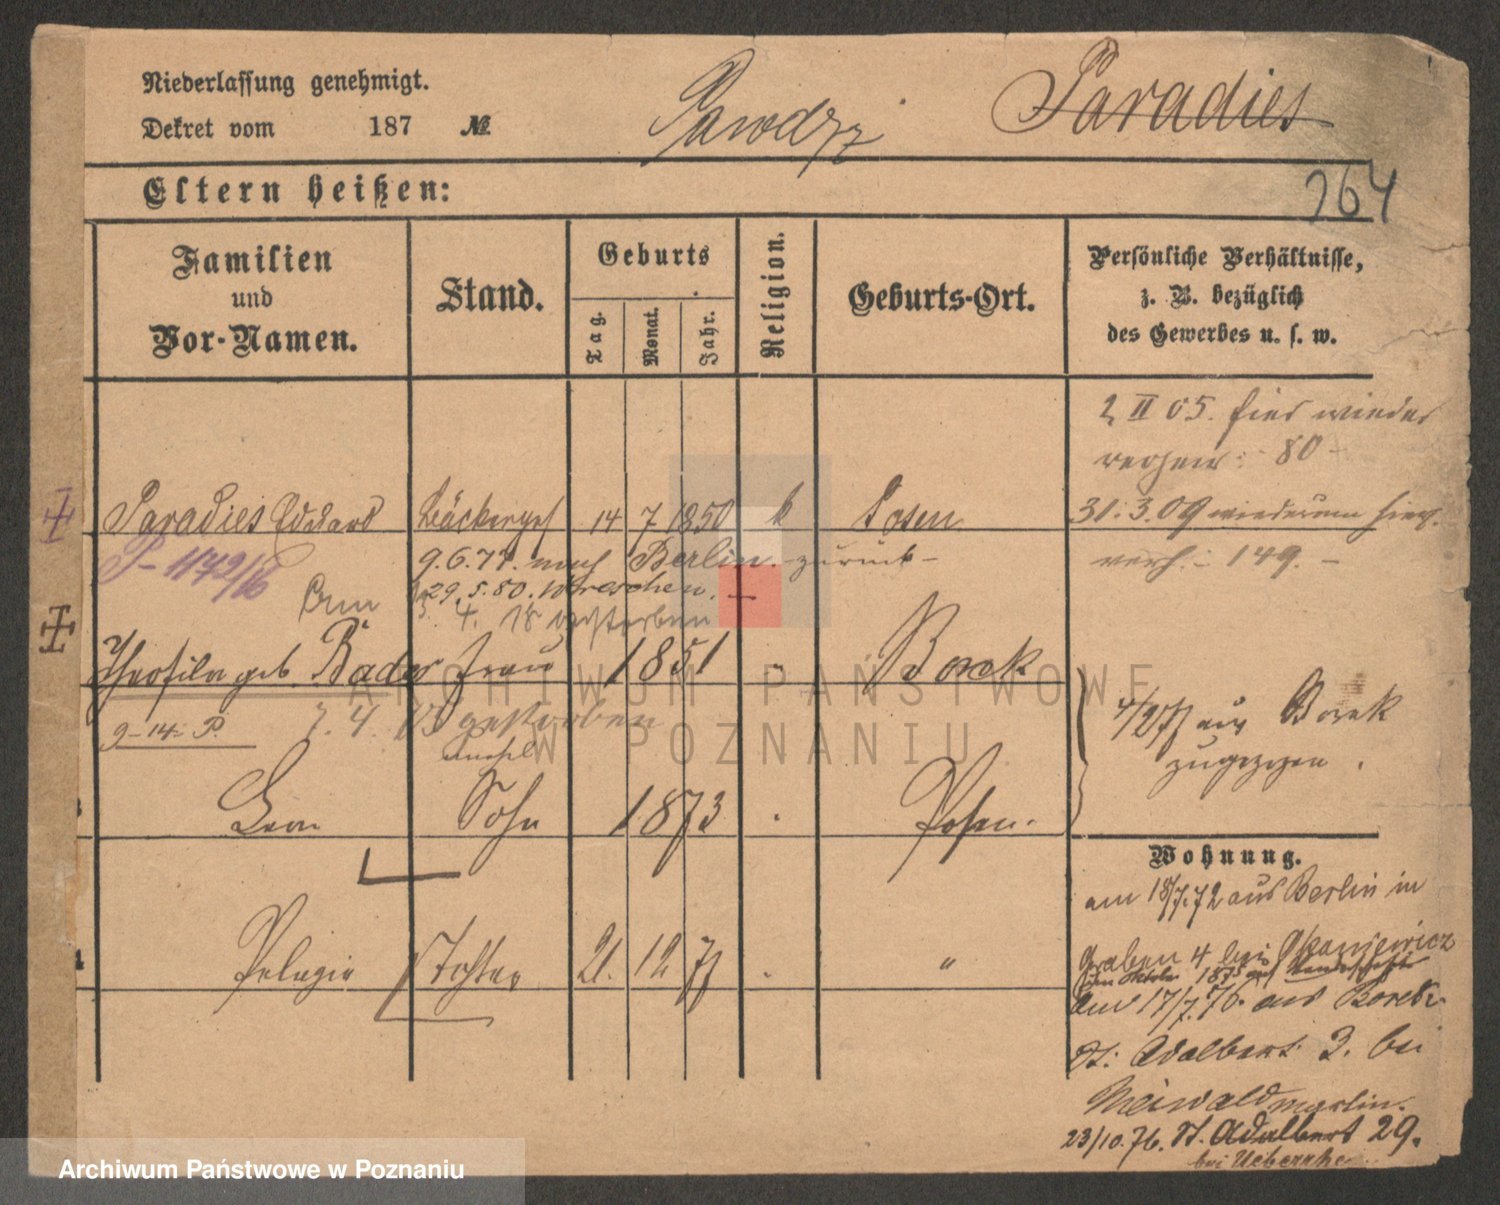 Niederlassung genehmigt.
Dekret vom 187 №
Paradies
164
Eltern heißen:
Familien
und
Vor-Namen.
Stand.
Geburts
Tag.
Monat.
Jahr.
Religion.
Geburts-Ort.
Persönliche Verhältnisse,
z. B. bezüglich
des Gewerbes u. s. w.
2 II 05. hier wieder
80
Paradies Eduard Bäckerges 14 7 1850 k Posen
31.3.09 wiederum hier.
P-1172/16
verh. - 149. -
9.6.77. nach Berlin. - zurück -
29.5.80. Wreschen. -
4. 18 verstorben
geb. Bäder Frau 1851 Borek
9-14- P.
7. 4. 13 gestorben
aus Borek
zugezogen.
Leon Sohn 1873 Posen.
Wohnung.
am 18/7.72 aus Berlin in
Pelagia Tochter 21. 12 77 "
Graben 4 bei
am 17/7.76. aus Borek.
St. Adalbert 3. bei
Neiwald
23/10.76. St. Adalbert 29.
bei
ARCHIWUM PAŃSTWOWE
W POZNANIU
Archiwum Państwowe w Poznaniu